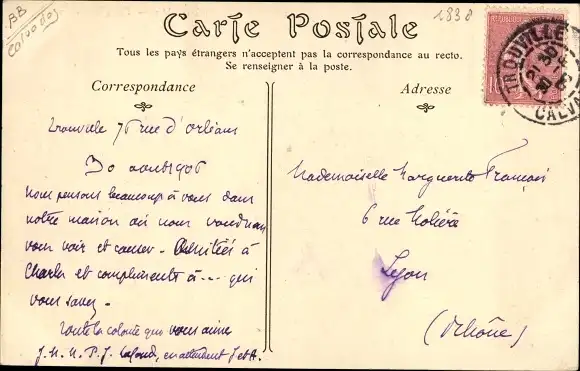 BB
Calvados
Carte Postale
1838
Tous les pays étrangers n'acceptent pas la correspondance au recto.
Se renseigner à la poste.
Correspondance
Adresse
TROUVILLE
21 30
30 -8
CALVA
10
Trouville 76 rue d'Orléans
30 aout 1906
Nous pensons beaucoup à vous dans
notre maison où nous voudrions
vous voir et causer - Amitiés à
Charles et compliments à... qui
vous savez.
Toute la colonie qui vous aime
J. M. M. P. J. en attendant J et A.
Mademoiselle Marguerite François
6 rue Molière
Lyon
(Rhône)